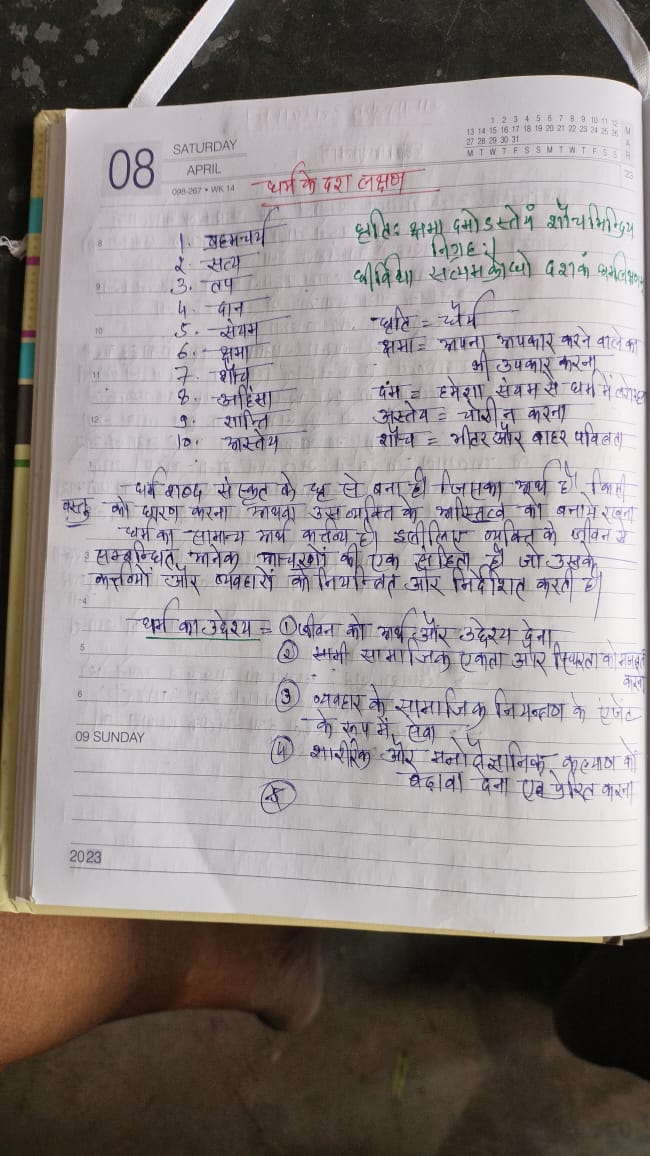 08
SATURDAY
APRIL
098-267 • WK 14
1 2 3 4 5 6 7 8 9 10 11 12
13 14 15 16 17 18 19 20 21 22 23 24 25 26
27 28 29 30 31
M T W T F S S M T W T F S S
MAR
23
धर्म के दश लक्षण
1. ब्रह्मचर्य
2. सत्य
3. तप
4. दान
5. संयम
6. क्षमा
7. शौच
8. अहिंसा
9. शान्ति
10. आस्तेय
धृतिः क्षमा दमोऽस्तेयं शौचमिन्द्रिय
निग्रहः।
धीर्विद्या सत्यमक्रोधो दशकं
धृति = धैर्य
क्षमा = अपना अपकार करने वाले का
भी उपकार करना
दम = हमेशा संयम से धर्म में
अस्तेय = चोरी न करना
शौच = भीतर और बाहर पवित्रता
धर्म शब्द संस्कृत के धृ से बना है। जिसका अर्थ है। किसी
वस्तु को धारण करना अथवा उस व्यक्ति के अस्तित्व को बनाये रखना
धर्म का सामान्य अर्थ कर्त्तव्य है। इसीलिए व्यक्ति के जीवन से
सम्बन्धित अनेक आचरणों की एक संहिता है। जो उसके
कर्त्तव्यों और व्यवहारों को नियन्त्रित और निर्देशित करती है।
धर्म का उद्देश्य = ① जीवन को अर्थ और उद्देश्य देना
② सामी सामाजिक एकता और स्थिरता को मजबूत
करना
③ व्यवहार के सामाजिक नियन्त्रण के एजेंट
के रूप में सेवा
④ शारीरिक और मनोवैज्ञानिक कल्याण को
बढ़ावा देना एवं प्रेरित करना
⑤
8
9
10
11
12
1
2
3
4
5
6
09 SUNDAY
2023